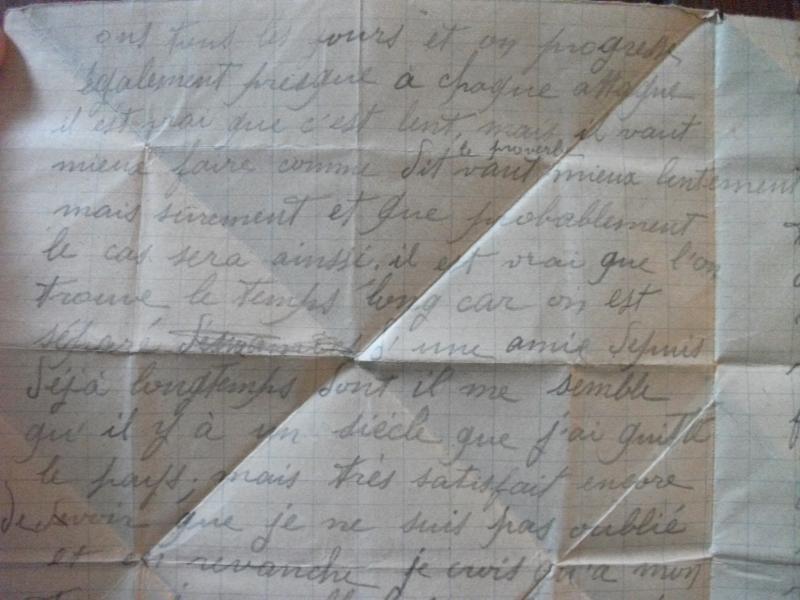 ont tous les jours et on progresse
également presque a chaque attaque
il est vrai que c'est lent, mais il vaut
mieux faire comme dit le proverbe vaut mieux lentement
mais surement et que probablement
le cas sera ainsi, il est vrai que l'on
trouve le temps long car on est
séparé d'une amie depuis
déjà longtemps dont il me semble
qu'il y à un siècle que j'ai quitté
le pays; mais très satisfait encore
de savoir que je ne suis pas oublié
et en revanche je crois qu'a mon